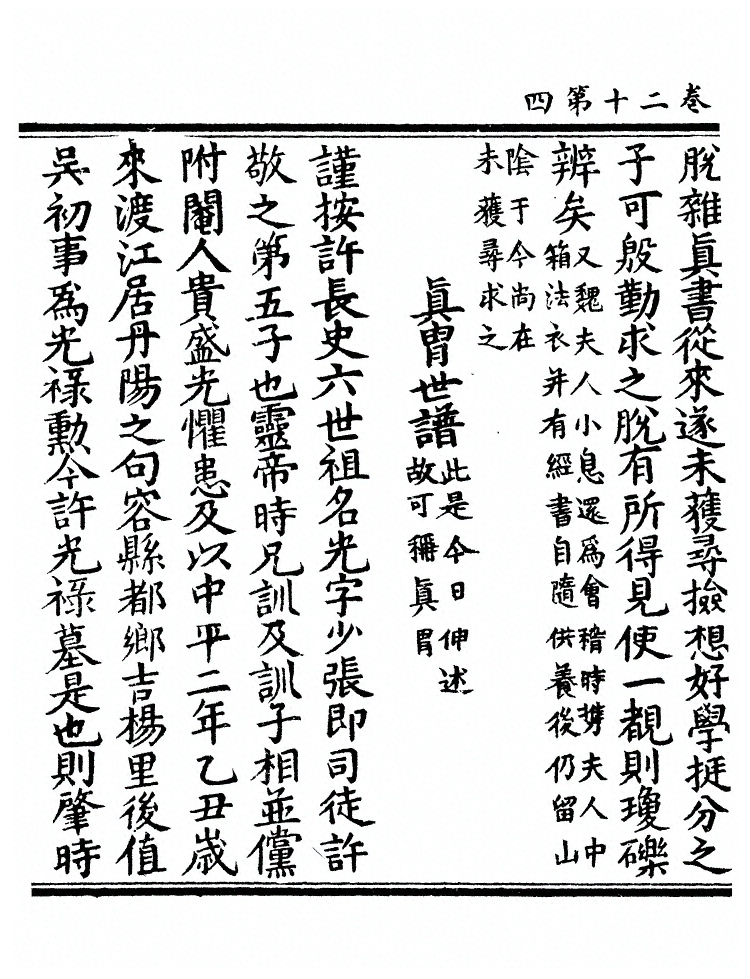 卷二十第四
脫雜眞書從來遂未獲尋撿想好學挺分之
子可殷勤求之脫有所得見使一覩則瓊礫
辨矣又魏夫人小息還爲會稽時攜夫人中
箱法衣并有經書自隨供養後仍留山
陰于今尚在
未獲尋求之
眞冑世譜此是今日伸述
故可稱眞冑
謹按許長史六世祖名光字少張即司徒許
敬之第五子也靈帝時兄訓及訓子相並儻
附閹人貴盛光懼患及以中平二年乙丑歲
來渡江居丹陽之句容縣都鄉吉楊里後值
吳初事爲光祿勳今許光祿墓是也則肇時